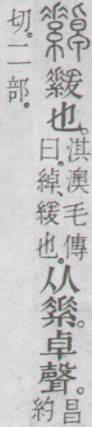 也。淇澳毛傳曰。綽、緩也。从素。卓聲。昌約
切。二部。